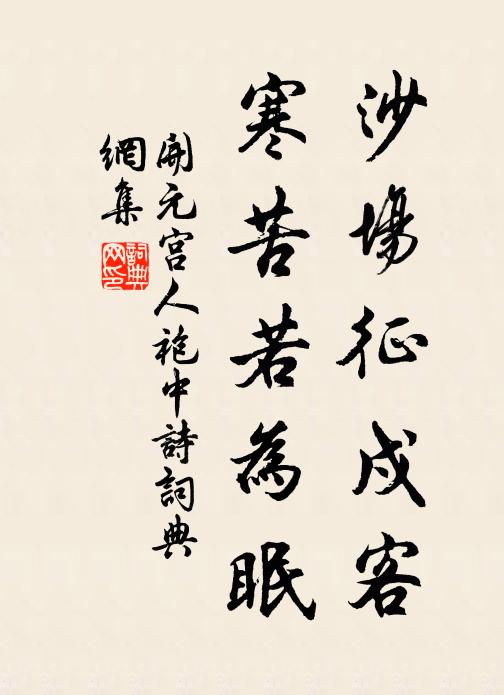 沙場征戍客
寒苦若為眠
開元宮人袍中詩詞典
網集
詞典
网印